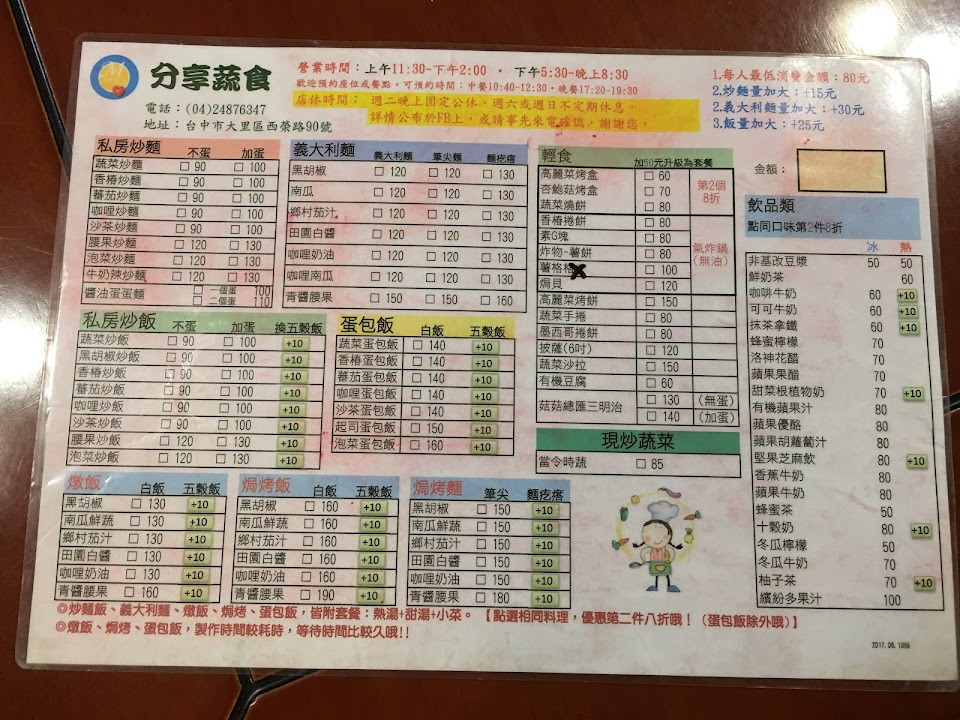 分享蔬食
電話：(04)24876347
地址：台中市大里區西榮路90號
營業時間：上午11:30~下午2:00 · 下午5:30~晚上8:30
歡迎預約座位或餐點，可預約時間：中餐10:40~12:30，晚餐17:20~19:30
店休時間： 週二晚上固定公休、週六或週日不定期休息，
詳情公布於FB上，或請事先來電確認，謝謝您。
1.每人最低消費金額：80元
2.炒麵量加大：+15元
2.義大利麵量加大：+30元
3.飯量加大：+25元
金額：
私房炒麵 不蛋 加蛋
蔬菜炒麵 □ 90 □ 100
香椿炒麵 □ 90 □ 100
蕃茄炒麵 □ 90 □ 100
咖哩炒麵 □ 90 □ 100
沙茶炒麵 □ 90 □ 100
腰果炒麵 □ 120 □ 130
泡菜炒麵 □ 120 □ 130
牛奶辣炒麵 □ 120 □ 130
醬油蛋蛋麵 □ 一個蛋 100
□ 二個蛋 110
義大利麵 義大利麵 筆尖麵 麵疙瘩
黑胡椒 □ 120 □ 120 □ 130
南瓜 □ 120 □ 120 □ 130
鄉村茄汁 □ 120 □ 120 □ 130
田園白醬 □ 120 □ 120 □ 130
咖哩奶油 □ 120 □ 120 □ 130
咖哩南瓜 □ 120 □ 120 □ 130
青醬腰果 □ 150 □ 150 □ 160
輕食 加50元升級為套餐
高麗菜烤盒 □ 60
杏鮑菇烤盒 □ 70
蔬菜燒餅 □ 80
第2個
8折
香椿捲餅 □ 80
素G塊 □ 80
炸物-薯餅 □ 80
薯格格 □ 100
焗貝 □ 120
氣炸鍋
(無油)
高麗菜烤餅 □ 150
蔬菜手捲 □ 80
墨西哥捲餅 □ 80
披薩(6吋) □ 120
蔬菜沙拉 □ 150
有機豆腐 □ 60
菇菇總匯三明治 □ 130 (無蛋)
□ 140 (加蛋)
現炒蔬菜
當令時蔬 □ 85
飲品類
點同口味第2件8折
冰 熱
非基改豆漿 50 50
鮮奶茶 60
咖啡牛奶 60 +10
可可牛奶 60 +10
抹茶拿鐵 60 +10
蜂蜜檸檬 70
洛神花醋 70
蘋果果醋 70
甜菜根植物奶 70 +10
有機蘋果汁 80
蘋果優酪 80
蘋果胡蘿蔔汁 80
堅果芝麻飲 80 +10
香蕉牛奶 80
蘋果牛奶 80
蜂蜜茶 50
十穀奶 80 +10
冬瓜檸檬 50
冬瓜牛奶 70
柚子茶 70 +10
繽紛多果汁 100
私房炒飯 不蛋 加蛋 換五穀飯
蔬菜炒飯 □ 90 □ 100 +10
黑胡椒炒飯 □ 90 □ 100 +10
香椿炒飯 □ 90 □ 100 +10
蕃茄炒飯 □ 90 □ 100 +10
咖哩炒飯 □ 90 □ 100 +10
沙茶炒飯 □ 90 □ 100 +10
腰果炒飯 □ 120 □ 130 +10
泡菜炒飯 □ 120 □ 130 +10
蛋包飯 白飯 五穀飯
蔬菜蛋包飯 □ 140 +10
香椿蛋包飯 □ 140 +10
蕃茄蛋包飯 □ 140 +10
咖哩蛋包飯 □ 140 +10
沙茶蛋包飯 □ 140 +10
起司蛋包飯 □ 150 +10
泡菜蛋包飯 □ 160 +10
燉飯 白飯 五穀飯
黑胡椒 □ 130 +10
南瓜鮮蔬 □ 130 +10
鄉村茄汁 □ 130 +10
田園白醬 □ 130 +10
咖哩奶油 □ 130 +10
青醬腰果 □ 160 +10
焗烤飯 白飯 五穀飯
黑胡椒 □ 160 +10
南瓜鮮蔬 □ 160 +10
鄉村茄汁 □ 160 +10
田園白醬 □ 160 +10
咖哩奶油 □ 160 +10
青醬腰果 □ 190 +10
焗烤麵 筆尖 麵疙瘩
黑胡椒 □ 150 +10
南瓜鮮蔬 □ 150 +10
鄉村茄汁 □ 150 +10
田園白醬 □ 150 +10
咖哩奶油 □ 150 +10
青醬腰果 □ 180 +10
◎炒麵飯、義大利麵、燉飯、焗烤、蛋包飯，皆附套餐：熱湯+甜湯+小菜。【點選相同料理，優惠第二件八折哦！（蛋包飯除外哦）】
◎燉飯、焗烤、蛋包飯，製作時間較耗時，等待時間比較久哦!!